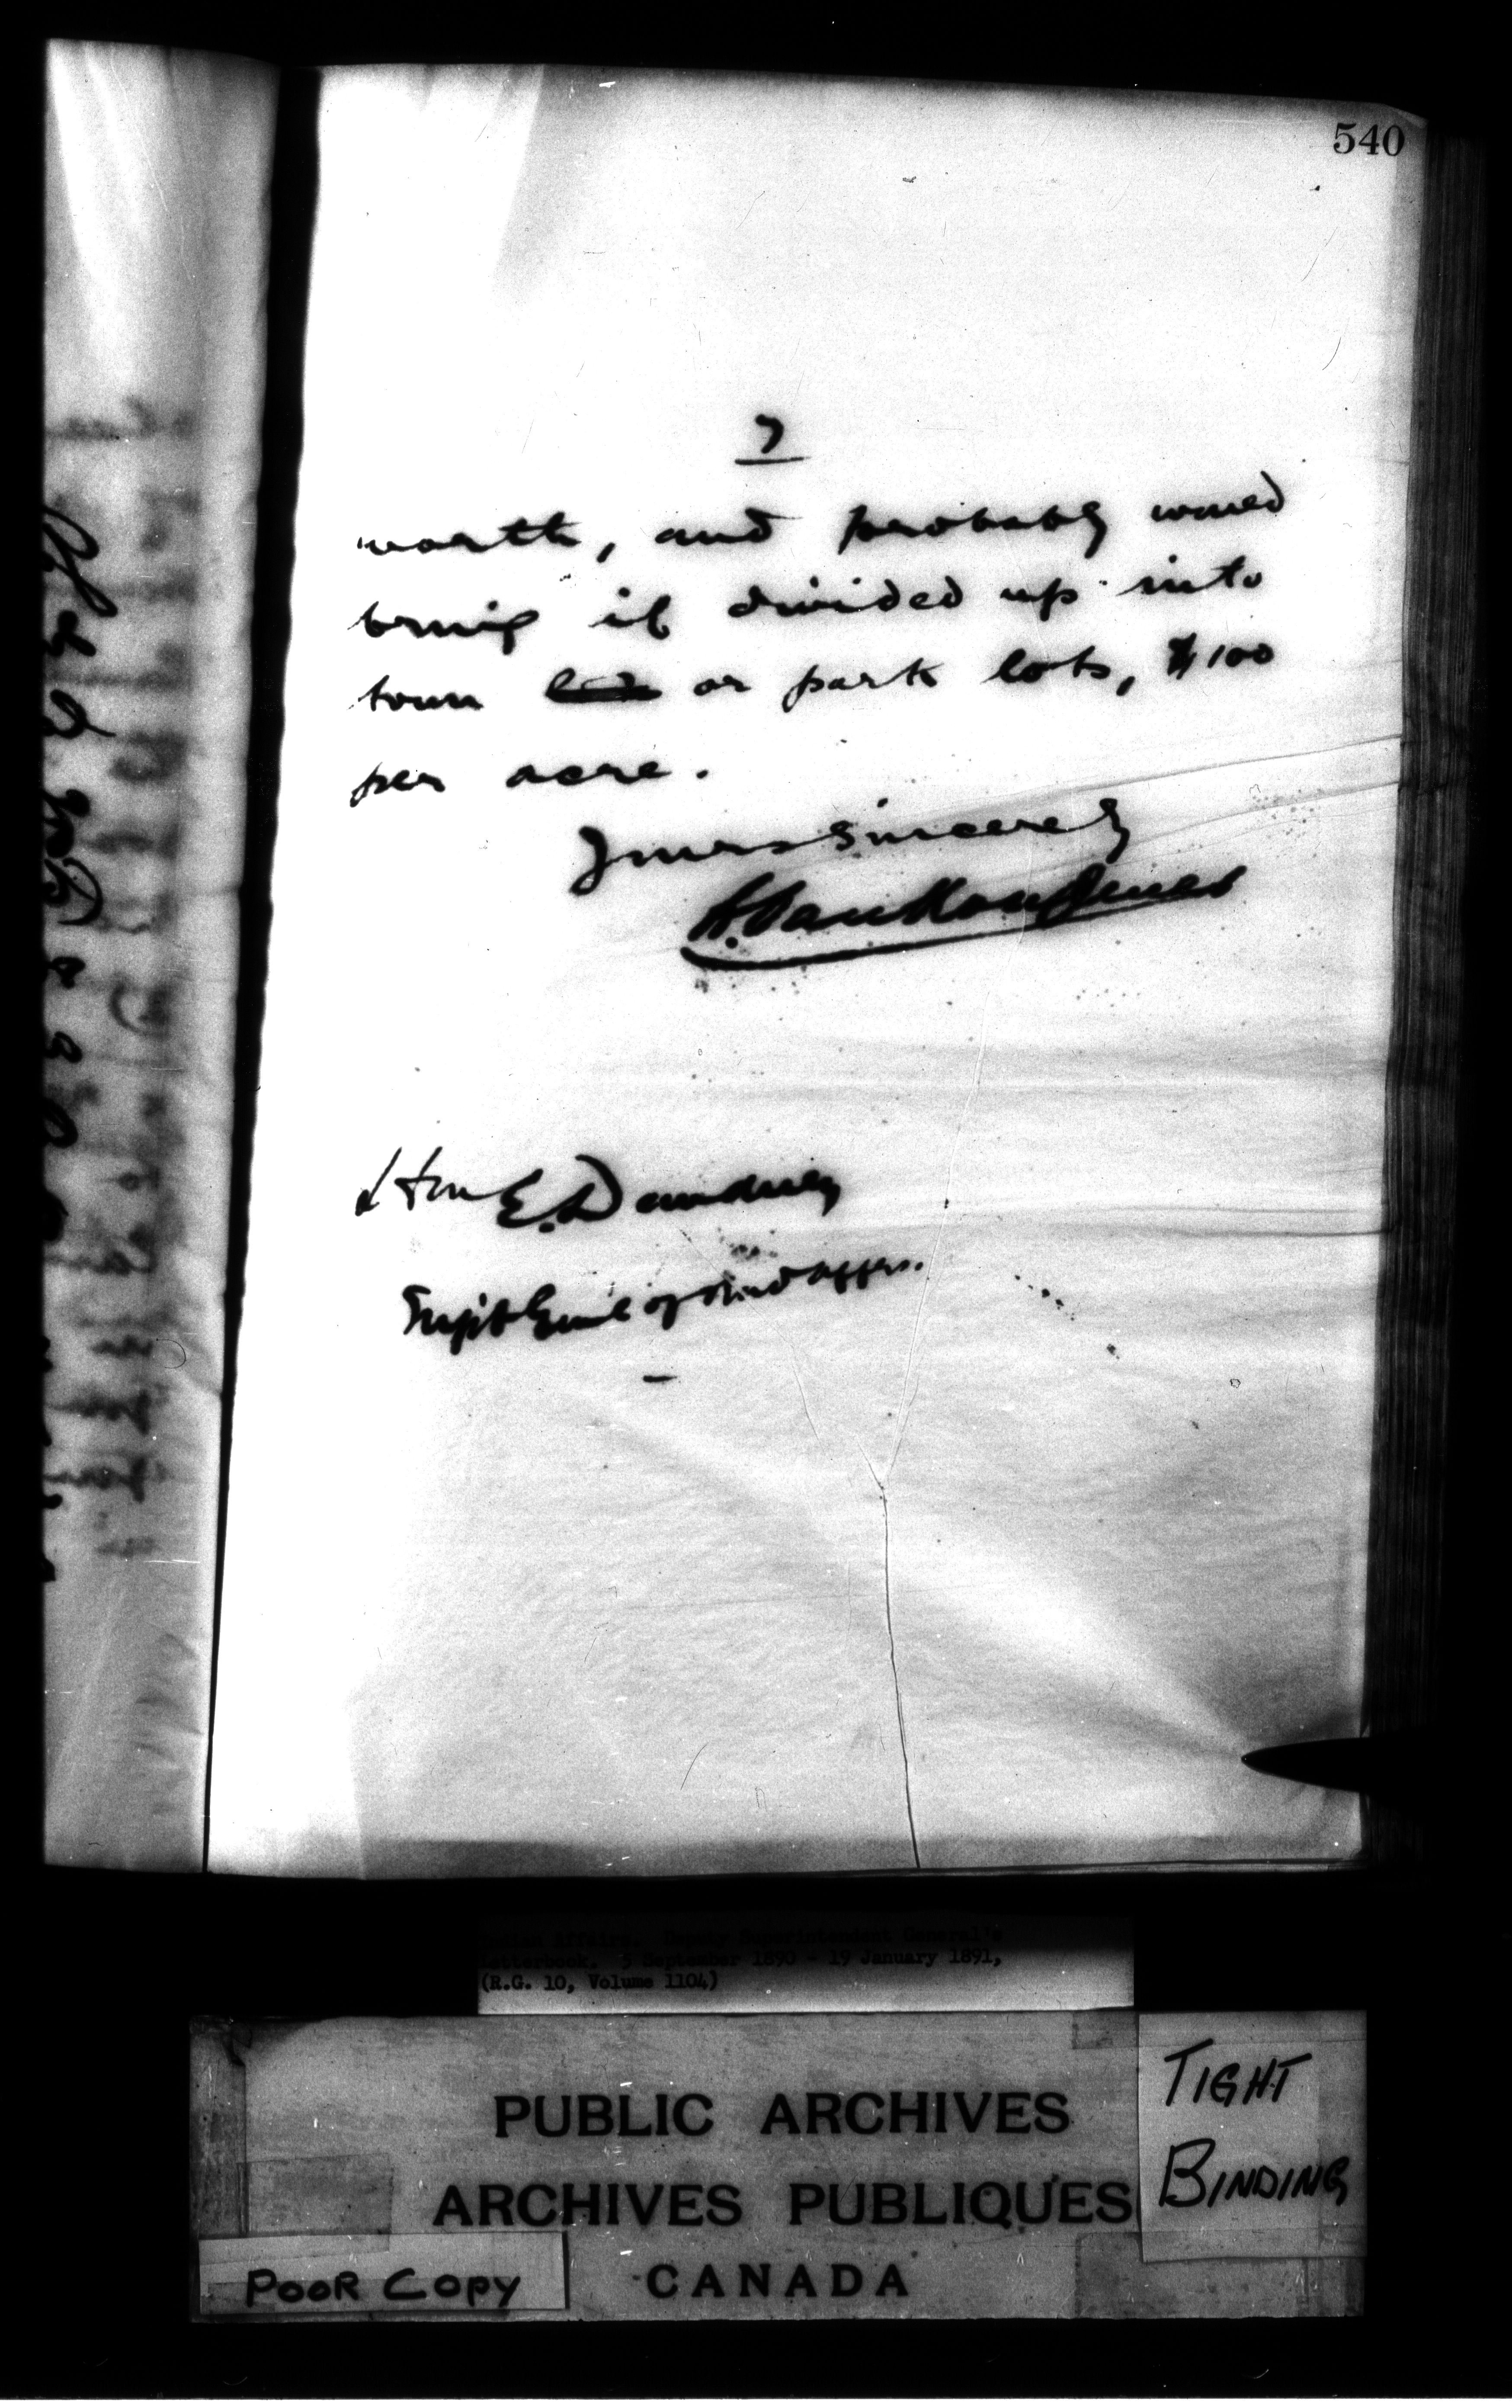 540
7
worth, and probably would
bring if divided up into
town or park lots, $100
per acre.
Yours sincerely
L. VanKoughnet
Hon E. Dewdney
Supt Genl of Ind Affrs.
Indian Affairs. Deputy Superintendent General's
Letterbook, 5 September 1890 - 19 January 1891,
(R.G. 10, Volume 1104)
PUBLIC ARCHIVES
ARCHIVES PUBLIQUES
CANADA
TIGHT
BINDING
POOR COPY